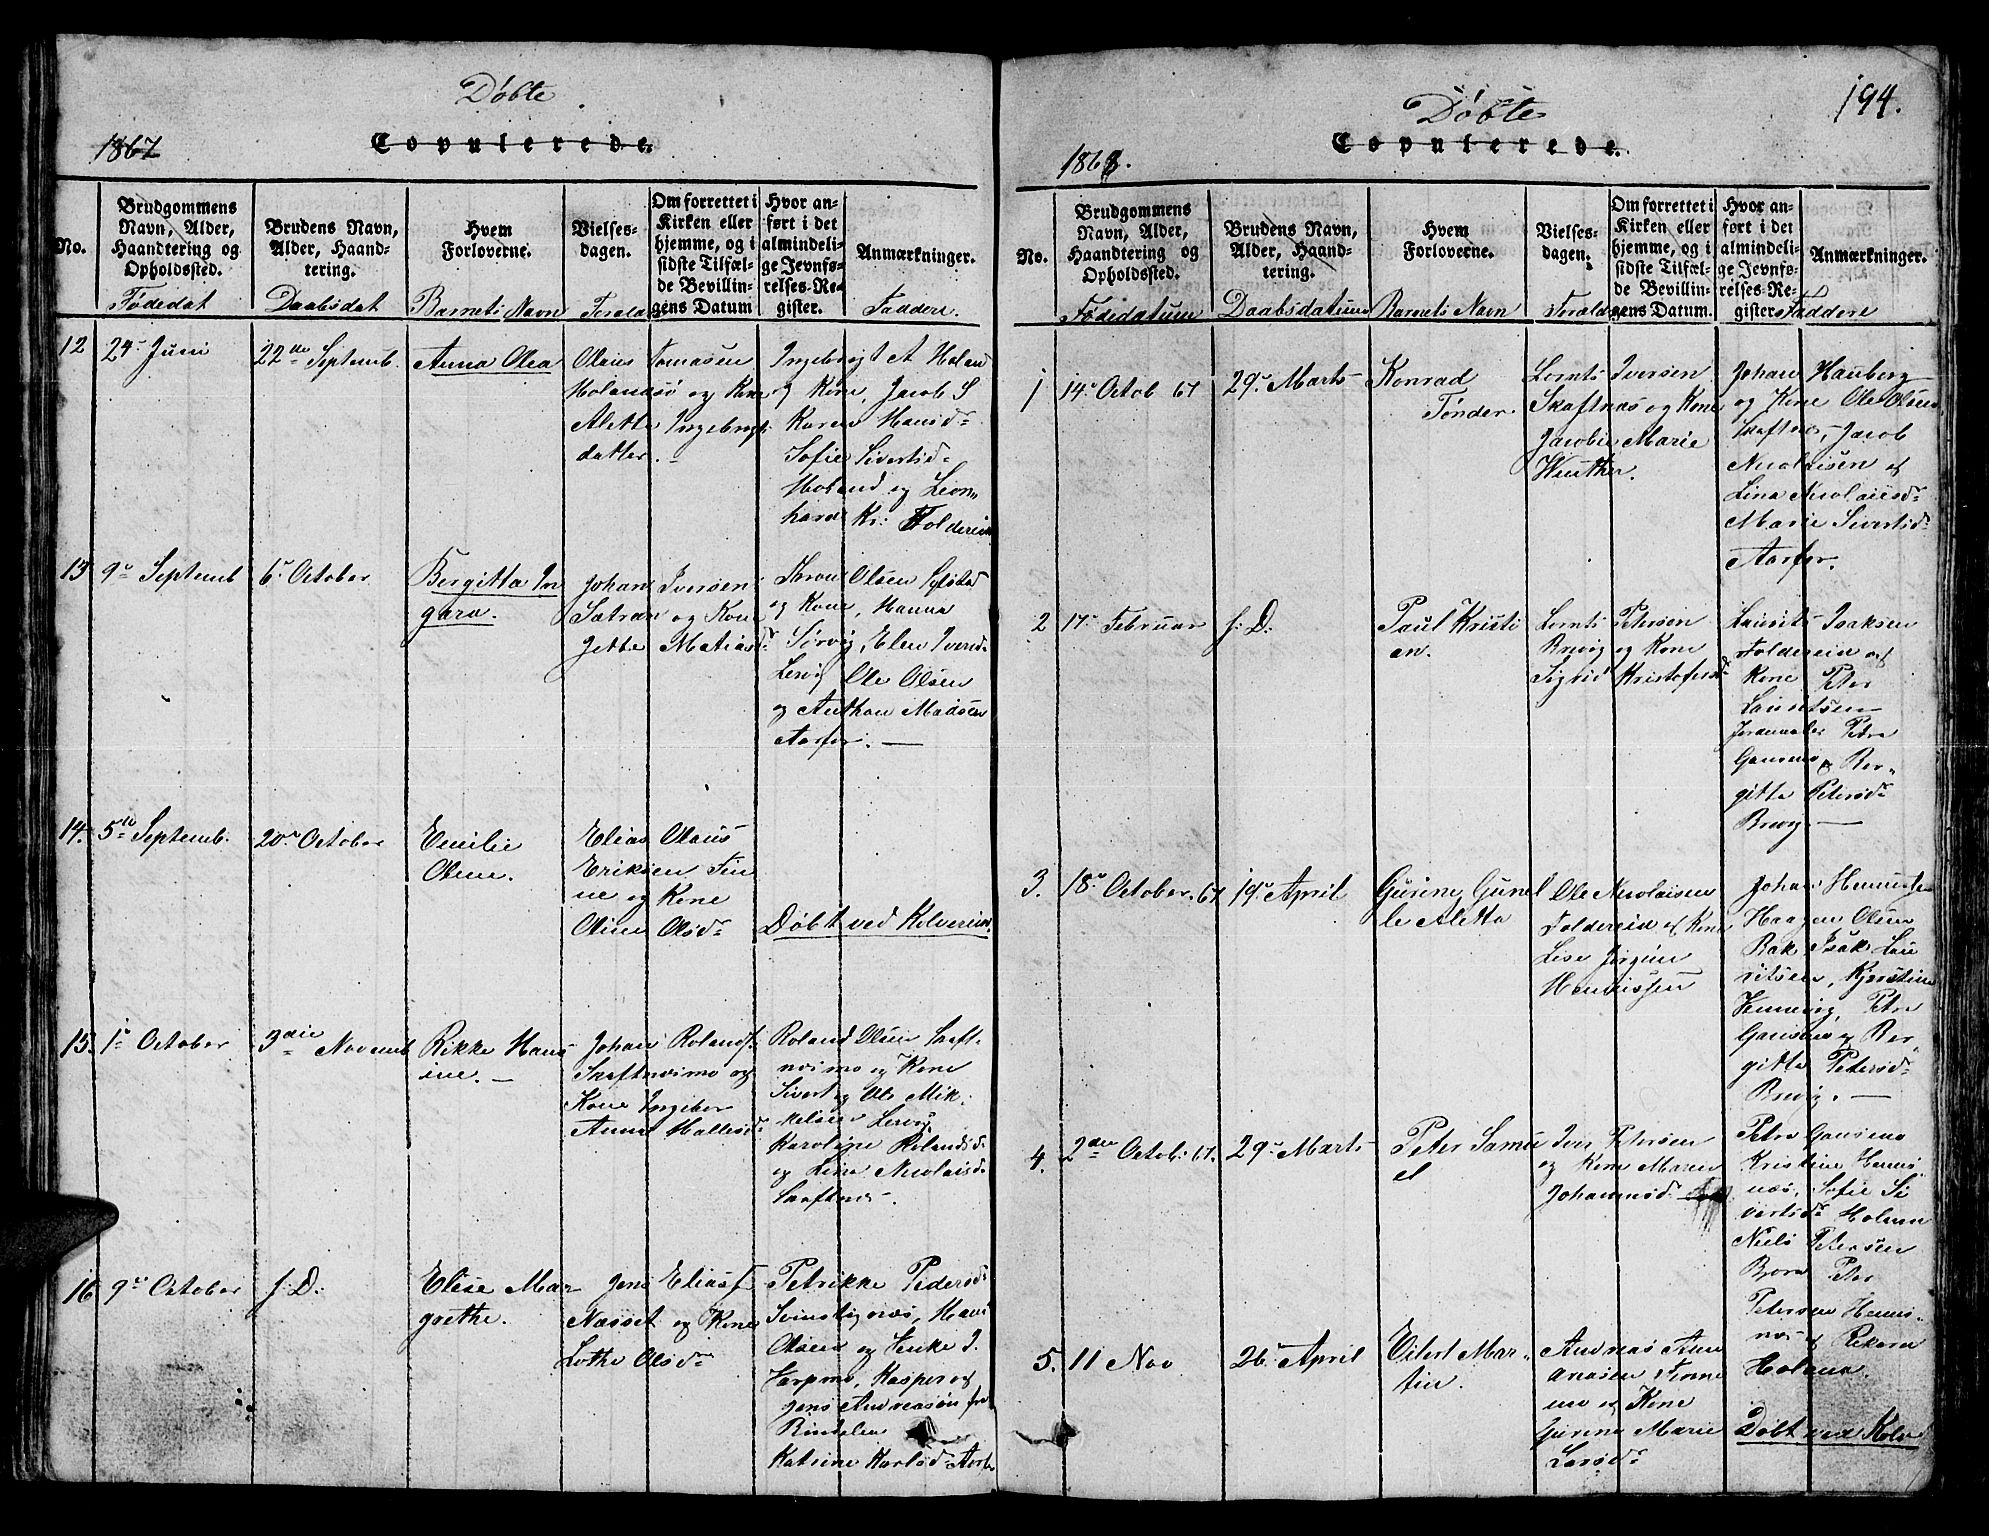 Döbte
1867
Copulerede.
No.
Brudgommens Navn, Alder, Haandtering og Opholdssted.
Brudens Navn, Alder, Haandtering.
Hvem Forloverne.
Vielsesdagen.
Om forrettet i Kirken eller hjemme, og i sidste Tilfælde Bevillingens Datum
Hvor anført i det almindelige Jevnførelses-Register.
Anmærkninger.
Födedat
Daabsdat
Barnets Navn
Foreld
Faddere.
12
24 Juni
22de Septemb.
Anna Olea
Olaus Tomasen
Holandsö og Kone
Alette Ingebrigt
datter.
Ingebrigt A Holand
og Kone, Jacob S
Karen Hansd
Sofie Sivertsd
Holand og Leon
hard Kr: Foldereid
13
9 Septemb
6 October
Bergitta In
gara.
Johan Iversen
Satran og Kone
Jette Matiasd
Olsen
og Kone, Hanna
Sörvig, Elen Iversd
Lervig Ole Olsen
og Anthon Madsen
Aarfor.
14.
5te Septemb.
20 October
Emilie
Oline.
Elias Olaus
Eriksen Fin
ne og Kone
Oline Olsd
Döbt ved Kolvereid.
15.
1 October
3die Novemb
Rikke Hans
ine.
Johan Rolandsf.
Skaftnesmo og
Kone Ingebor
Anna Hallesd
Roland Olsen Skaft
nesmo og Kone
Sivert og Ole Mik
kelsen Lervig
Karoline Rolandsd
og Line Nicolaisd
Skaftnes.
16
9 October
f: D.
Elise Mar
grethe.
Jens Eliasf
Nasset og Kone
Lothe Olsd
Petrikke Pedersd
Svinstignes, Hans
Olsen og Jenke J.
Harpmo, Kasper og
Jens Andreasen fra
Rindelien
Katrine Karlsd Aarfor
194.
Döbte
1868.
Copulerede.
No.
Brudgommens Navn, Alder, Haandtering og Opholdssted.
Brudens Navn, Alder, Haandtering.
Hvem Forloverne.
Vielsesdagen.
Om forrettet i Kirken eller hjemme, og i sidste Tilfælde Bevillingens Datum.
Hvor anført i det almindelige Jevnførelses-Register
Anmærkninger.
Födedatum
Daabsdatum
Barnets Navn
Foreld
Faddere
1
14 Octob 67
29 Marts
Konrad
Tönder.
Lornts Iversen
Skaftnes og Kone
Jacobie Marie
Winther.
Johan Hauberg
og Kone Ole Olsen
Skaftnes, Jacob
Nicolaisen of
Lina Nicolaiesd
Marie Sivertsd
Aarfor.
2
17 Februar
f: D:
Paul Kristi
an.
Lornts Petersen
Brevig og Kone
Sigrid Kristofersd
Laurits Isaksen
Foldereid of
Kone Peter
Lauritsen
Jordemoder Petra
Gansmo og Ber
gitta Petersd
Brevig.
3.
18 October. 67
19 April
Gurine Gunel
le Aletta
Ole Nicolaisen
Foldereid of Kone
Lise Jörgine
Hennissen
Haagen Olsen
Bak Isak Lau
ritsen, Kjerstine
Petra
Gansmo og Ber
gitta Petersd
Brevig.
4.
2den Octob: 67.
29 Marts
Peter Samu
el
Iver Petersen
og Kone Maren
Johannesd
Petra Gansmo
Kristine Hennes
nes, Sofie Si
vertsd Holmen
Niels Petersen
Björn Peter
Petersen Hennes
nes of Rikard
Holand.
5.
11 Nov
26 April
Eilert Mar
tin.
Andreas Am
ariasen Finne
mo of Kone
Gurine Marie
Larsd
Döbt ved Kolv